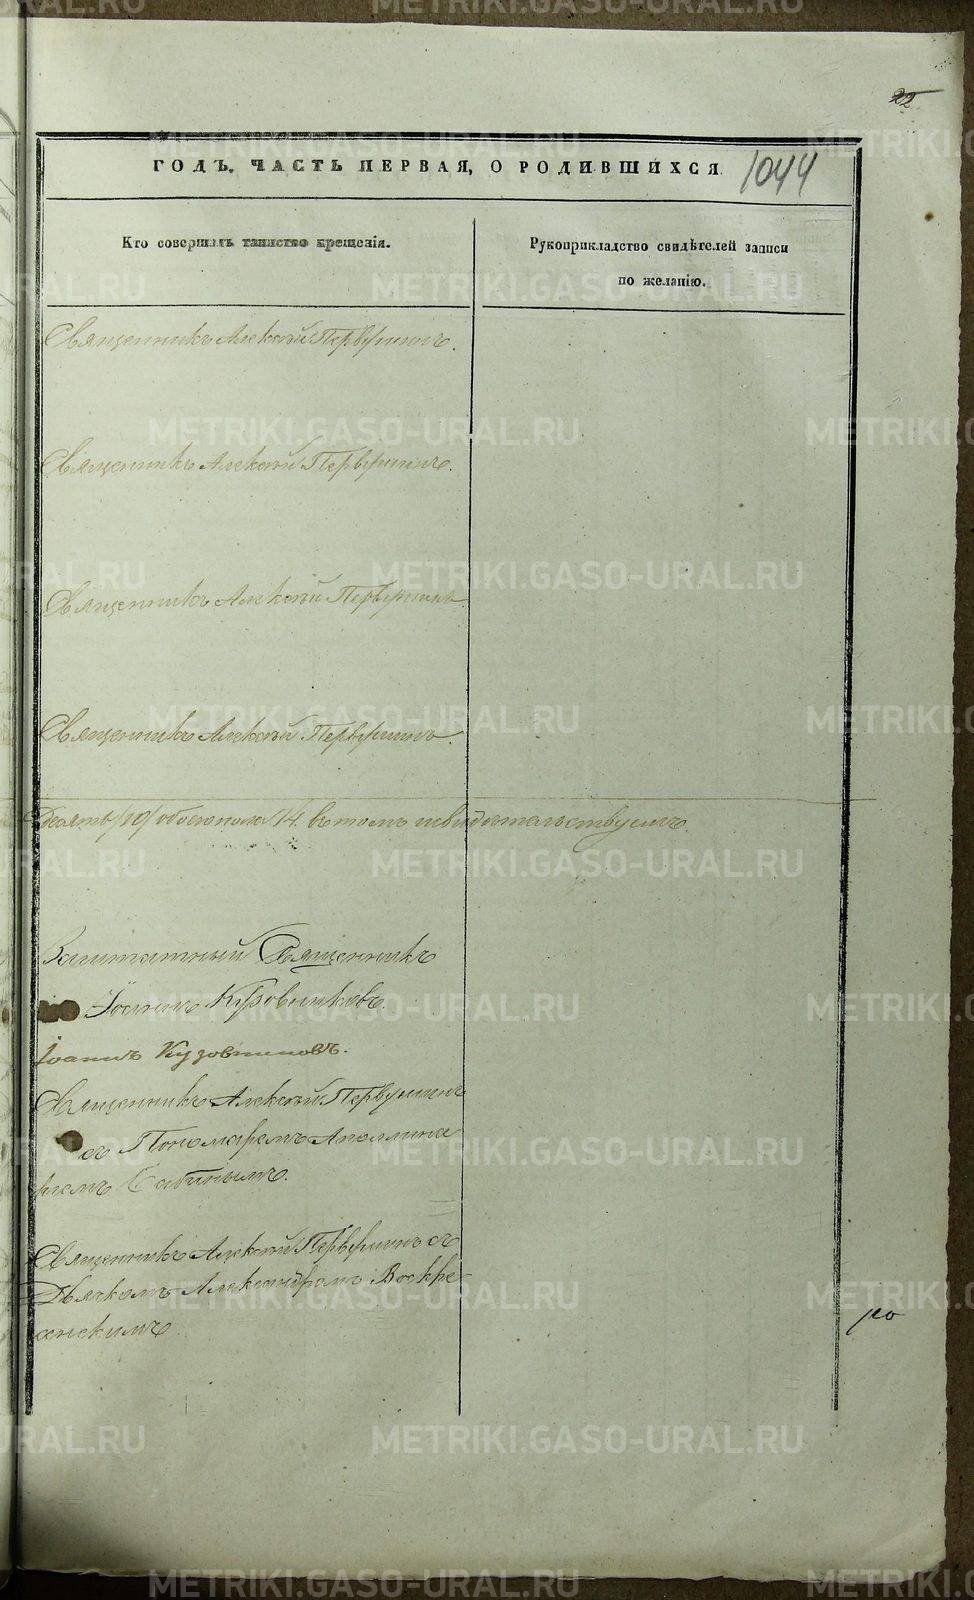 22
ГОДЪ. ЧАСТЬ ПЕРВАЯ, О РОДИВШИХСЯ 1044
Кто совершалъ таинство крещенія.
Рукоприкладство свидѣтелей записи
по желанію.
Священникъ Алексѣй Первушинъ.
Священникъ Алексѣй Первушинъ.
Священникъ Алексѣй Первушинъ.
Священникъ Алексѣй Первушинъ.
Десять /10/ обоего пола 14. въ томъ и свидѣтельствуемъ.
Заштатный Священникъ
Іоаннъ Кузовниковъ.
Іоаннъ Кузовниковъ.
Священникъ Алексѣй Первушинъ
съ Пономаремъ Аполлина
ріемъ Сабинымъ.
Священникъ Алексѣй Первушинъ съ
Дьячкомъ Александромъ Воскре-
сенскимъ
METRIKI.GASO-URAL.RU